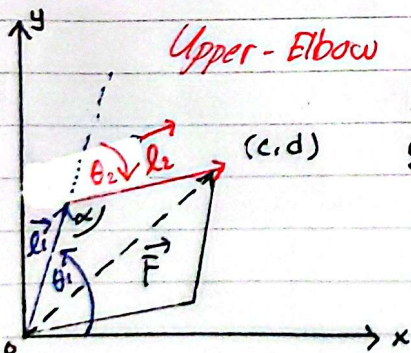 y
Upper-Elbow
θ₂ l₂
(c,d)
l₁ α
θ₁ F
o x